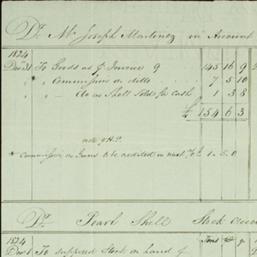 Dr. Mr. Joseph Martinez in Account
1824
Dec 31 To Goods as p Invoice 9 145 16 9
" " Commission on ditto 7 5 10
" " Do on Shell Sold for Cash 1 3 8
£ 154 6 3
note p H.P.
* Commission on to be credited in next 1. 5. 0
Dr. Pearl Shell Stock
1824
To supposed Stock on hand of